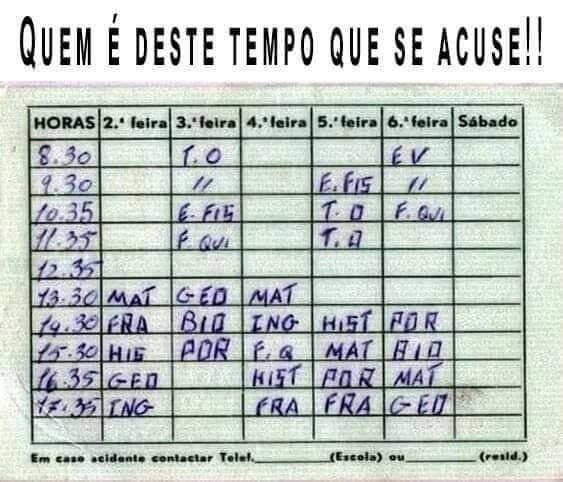 QUEM É DESTE TEMPO QUE SE ACUSE!!
HORAS 2.ª feira 3.ª feira 4.ª feira 5.ª feira 6.ª feira Sábado
8.30 T.O EV
9.30 " E.FIS "
10.35 E.FIS T.O F.QUI
11.35 F.QUI T.O
12.35
13.30 MAT GEO MAT
14.30 FRA BIO ING HIST POR
15.30 HIS POR F.Q MAT BIO
16.35 GEO HIST POR MAT
17.35 ING FRA FRA GEO
Em caso acidente contactar Telef. (Escola) ou (resid.)